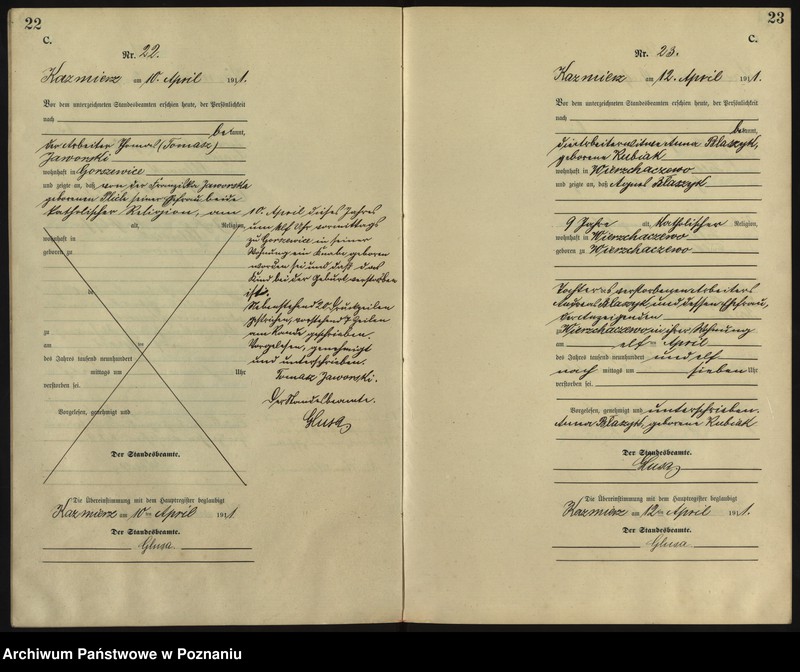 22
C.
Nr. 22.
Kazmierz am 10. April 1911.
Vor dem unterzeichneten Standesbeamten erschien heute, der Persönlichkeit
nach
bekannt,
der Arbeiter Thomas (Tomasz)
Jaworski
wohnhaft in Gorszewice
und zeigte an, daß von der Franziska Jaworska
geborenen seiner Ehefrau beide
katholischer Religion, am
alt, Religion,
wohnhaft in
geboren zu
zu
am ten
des Jahres tausend neunhundert
mittags um Uhr
verstorben sei.
Vorgelesen, genehmigt und
Der Standesbeamte.
10. April dieses Jahres
um elf Uhr vormittags
zu Gorszewice in seiner
Wohnung ein Knabe geboren
worden sei und daß das
Kind bei der Geburt verstorben
ist.
Nebenstehend 20 Druckzeilen
gestrichen, vorstehend 7 Zeilen
am Rande geschrieben.
Vorgelesen, genehmigt
und unterschrieben.
Tomasz Jaworski.
Der Standesbeamte.
Glusa
Die Übereinstimmung mit dem Hauptregister beglaubigt
Kazmierz am 10ten April 1911.
Der Standesbeamte.
Glusa.
23
C.
Nr. 23.
Kazmierz am 12. April 1911.
Vor dem unterzeichneten Standesbeamten erschien heute, der Persönlichkeit
nach
bekannt,
die Arbeiterwitwe Anna Błaszyk,
geborene Kubiak
wohnhaft in Wierzchaczewo
und zeigte an, daß Agnes Błaszyk
9 Jahre alt, katholischer Religion,
wohnhaft in Wierzchaczewo
geboren zu Wierzchaczewo
Tochter des verstorbenen Arbeiters
Andreas Błaszyk und dessen Ehefrau,
der Anzeigenden
zu Wierzchaczewo in ihrer Wohnung
am elften April
des Jahres tausend neunhundert und elf
nach mittags um sieben Uhr
verstorben sei.
Vorgelesen, genehmigt und unterschrieben.
Anna Błaszyk, geborene Kubiak
Der Standesbeamte.
Glusa
Die Übereinstimmung mit dem Hauptregister beglaubigt
Kazmierz am 12ten April 1911.
Der Standesbeamte.
Glusa
Archiwum Państwowe w Poznaniu